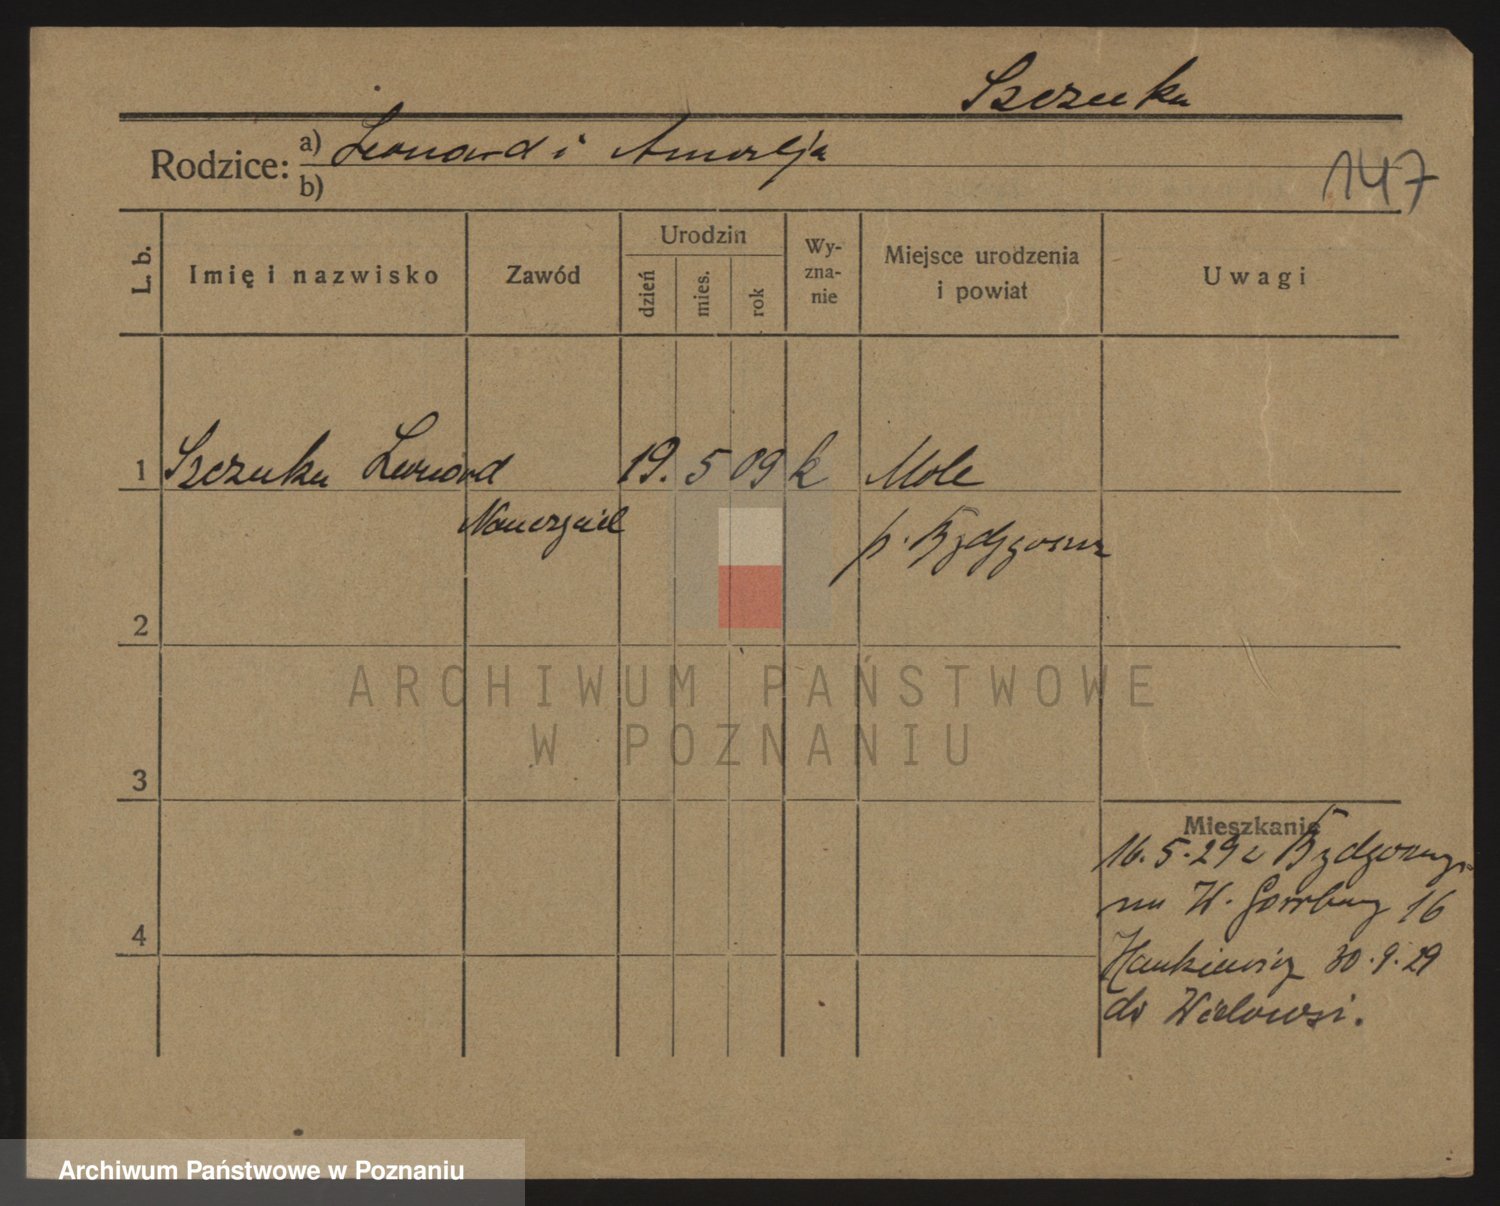 Szczuka
Rodzice: a) Leonard i Amalja
b)
147
L. b.
Imię i nazwisko
Zawód
Urodzin
dzień
mies.
rok
Wy-
zna-
nie
Miejsce urodzenia
i powiat
Uwagi
1 Szczuka Leonard 19. 5 09 k Mole
Nauczyciel p. Bydgoszcz
2
ARCHIWUM PAŃSTWOWE
W POZNANIU
3
Mieszkanie
16. 5. 29 z Bydgoszczy
na W. 16
30. 9. 29
4
do Wielowsi.
Archiwum Państwowe w Poznaniu